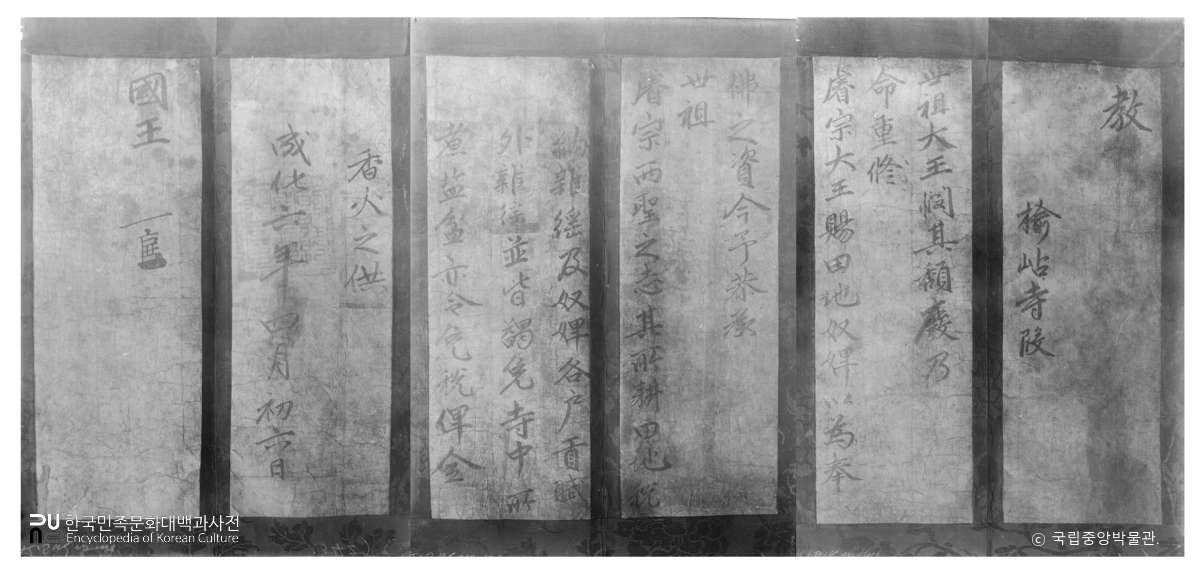 教
楡岾寺段
世祖大王憫其頹廢乃
命重修
睿宗大王賜田地奴婢以為奉
佛之資今予恭承
世祖
睿宗兩聖之志其所耕田地稅
納雜徭及奴婢各戶貢賦
外雜徭並皆蠲免寺中所
煮盐盆亦令免稅俾全
香火之供
成化六年四月初六日
國王
PU 한국민족문화대백과사전
Encyclopedia of Korean Culture
© 국립중앙박물관.